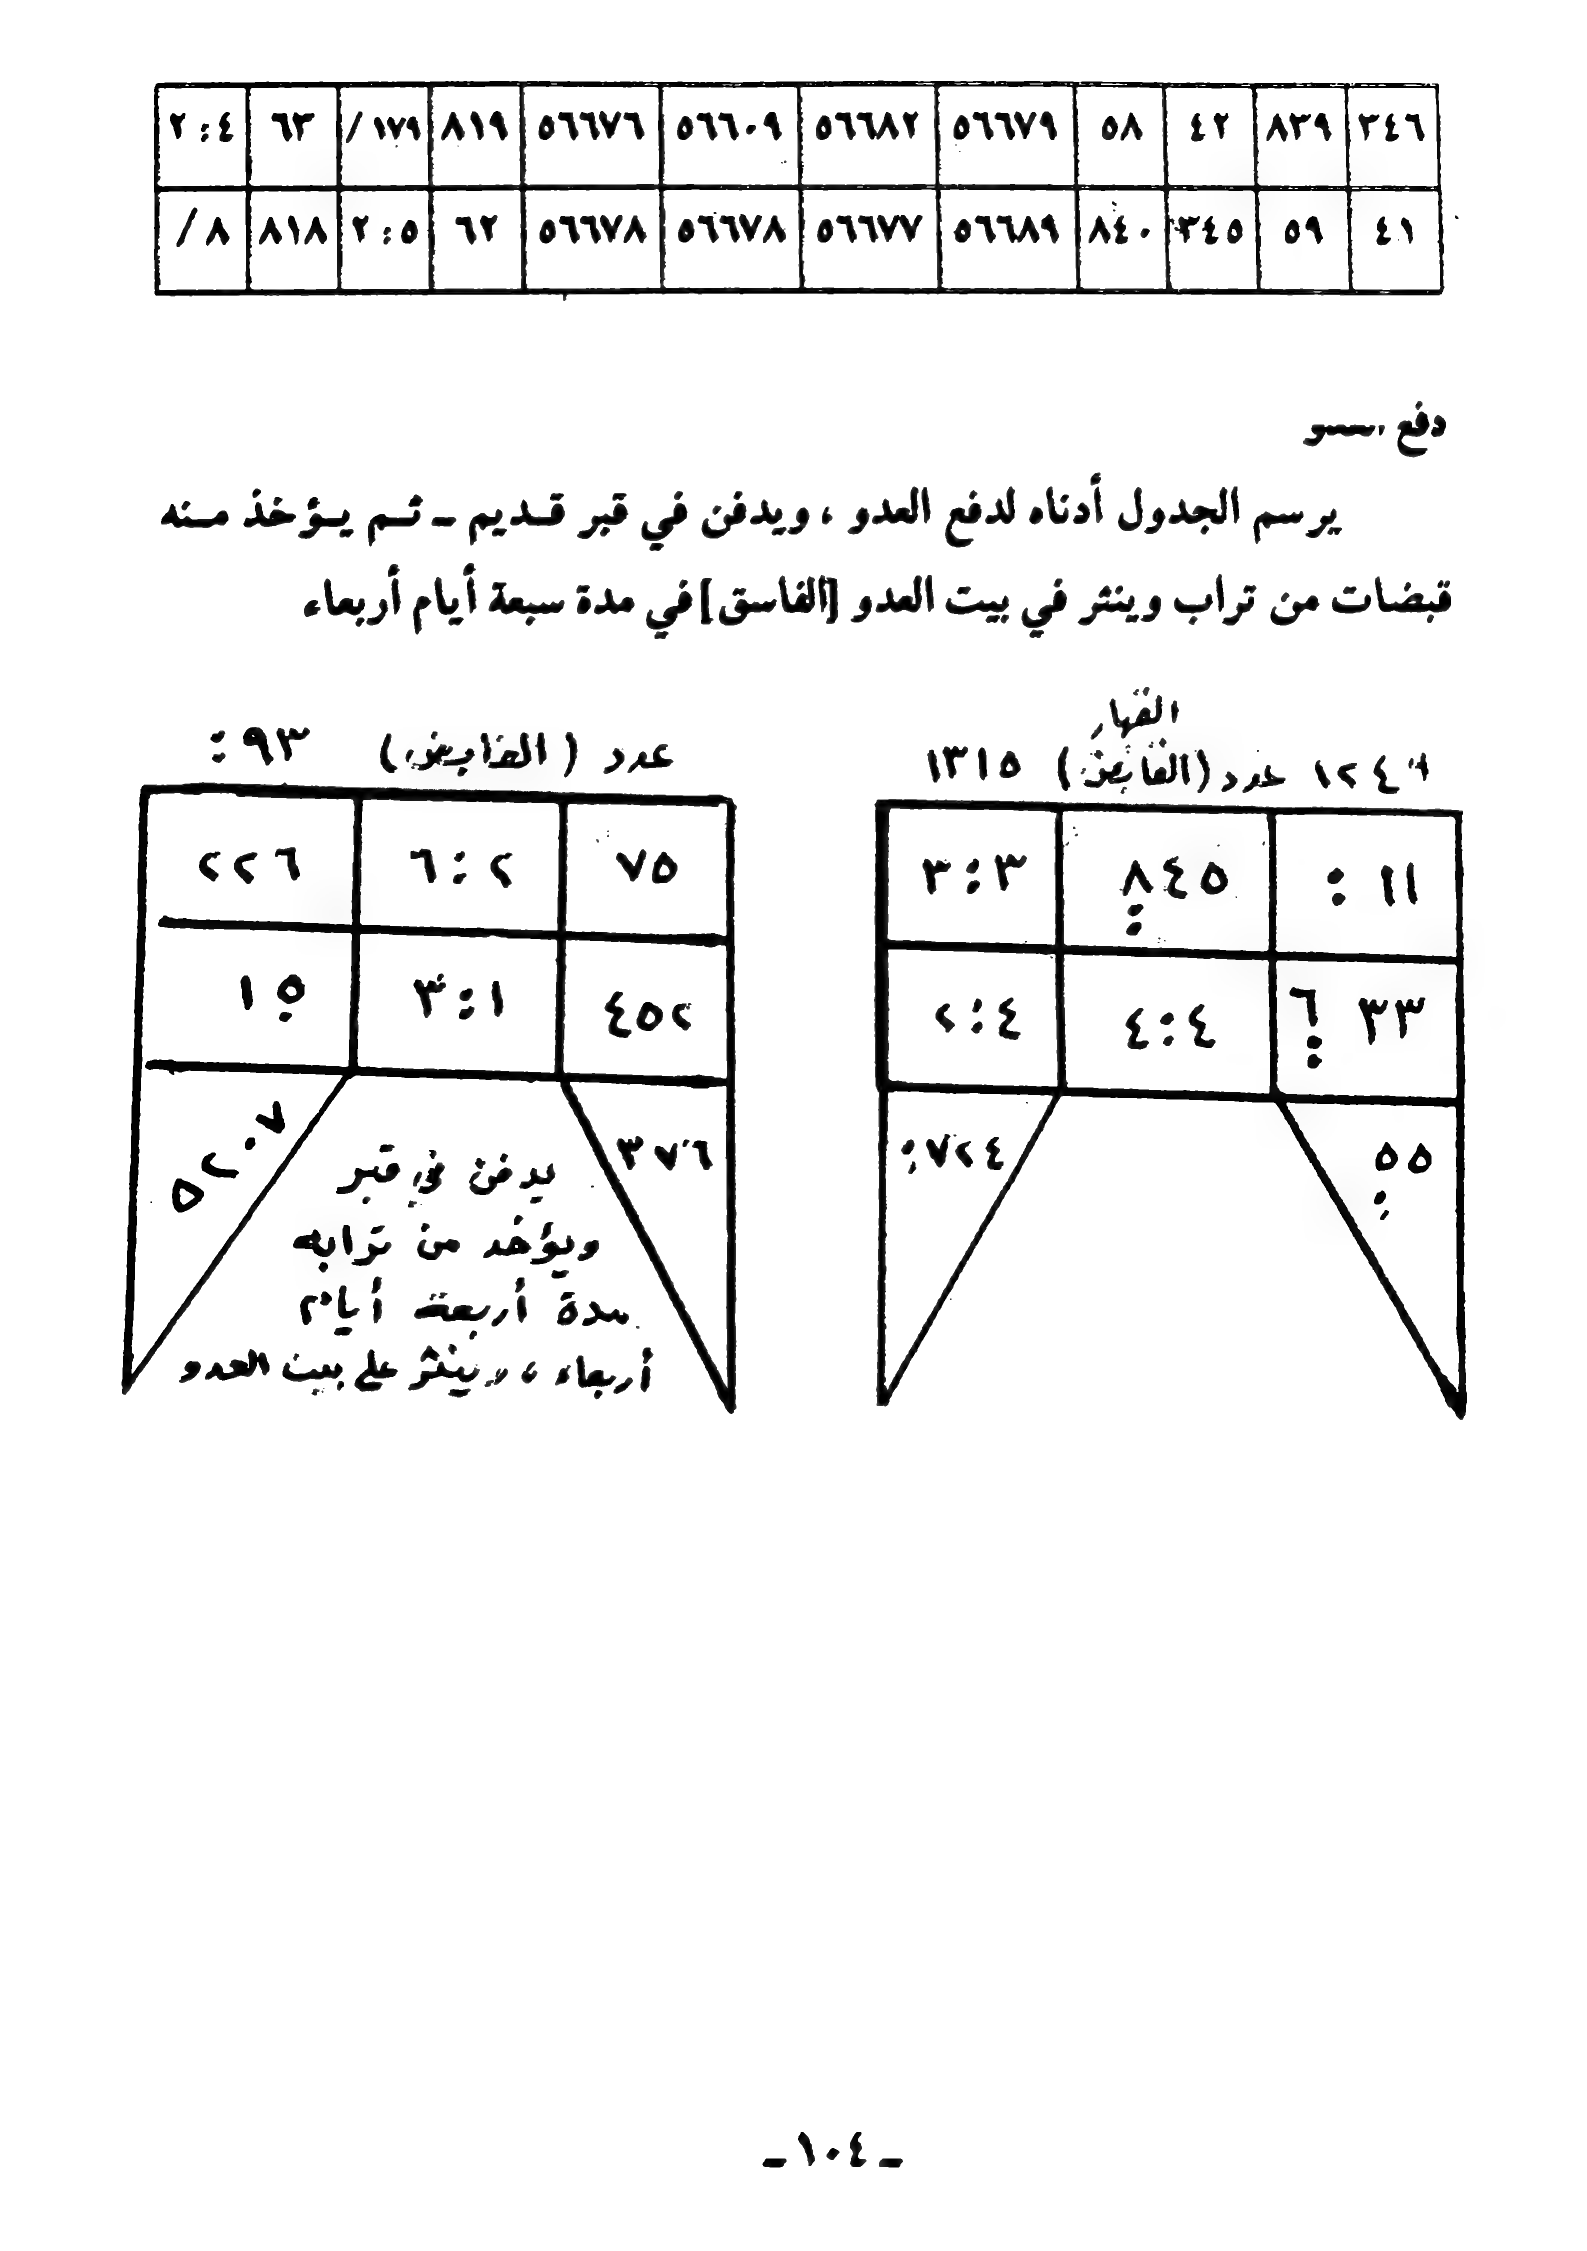 ٣٤٦ ٨٣٩ ٤٢ ٥٨ ٥٦٦٧٩ ٥٦٦٨٢ ٥٦٦٠٩ ٥٦٦٧٦ ٨١٩ ١٧٩/ ٦٣ ٢:٤
٤١ ٥٩ ٣٤٥ ٨٤٠ ٥٦٦٨٩ ٥٦٦٧٧ ٥٦٦٧٨ ٥٦٦٧٨ ٦٢ ٢:٥ ٨١٨ ٨/
دفع
يرسم الجدول أدناه لدفع العدو ، ويدفن في قبر قديم ـ ثم يؤخذ منه
قبضات من تراب وينثر في بيت العدو [الفاسق] في مدة سبعة أيام أربعاء
القهار
١٢٤ عدد (القابض) ١٣١٥
١١ : ٨٤٥ : ٣:٣
٣٣ ٦ : ٤:٤ ٢:٤
٥٥ : ٧٢٤:
عدد ( الخافض ) ٩٣ :
٧٥ ٦:٢ ٢٢٦
٤٥٢ ٣:١ ١٥
٣٧٦ ٥٢٠٧
يدفن في قبر
ويؤخذ من ترابه
مدة أربعة أيام
أربعاء ، وينثر على بيت العدو
ـ ١٠٤ ـ